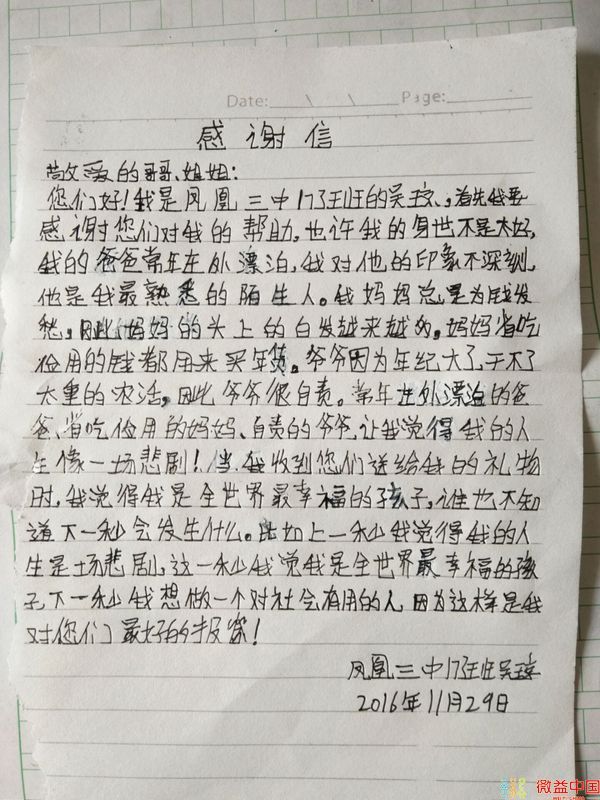 Date: \ \ Page:
感谢信
敬爱的哥哥、姐姐:
您们好!我是凤凰三中173班的吴琼,首先我要
感谢您们对我的帮助,也许我的身世不是太好,
我的爸爸常年在外漂泊,我对他的印象不深刻,
他是我最熟悉的陌生人。我妈妈总是为钱发
愁,因此,妈妈的头上的白发越来越多,妈妈省吃
俭用的钱都用来买年货。爷爷因为年纪大了,干不了
太重的农活,因此爷爷很自责。常年在外漂泊的爸
爸、省吃俭用的妈妈、自责的爷爷,让我觉得我的人
生像一场悲剧!当我收到您们送给我的礼物
时,我觉得我是全世界最幸福的孩子,谁也不知
道下一秒会发生什么。比如上一秒我觉得我的人
生是场悲剧,这一秒我觉我是全世界最幸福的孩
子,下一秒我想做一个对社会有用的人,因为这样是我
对您们最好的报答!
凤凰三中173班吴琼
2016年11月29日
微益中国